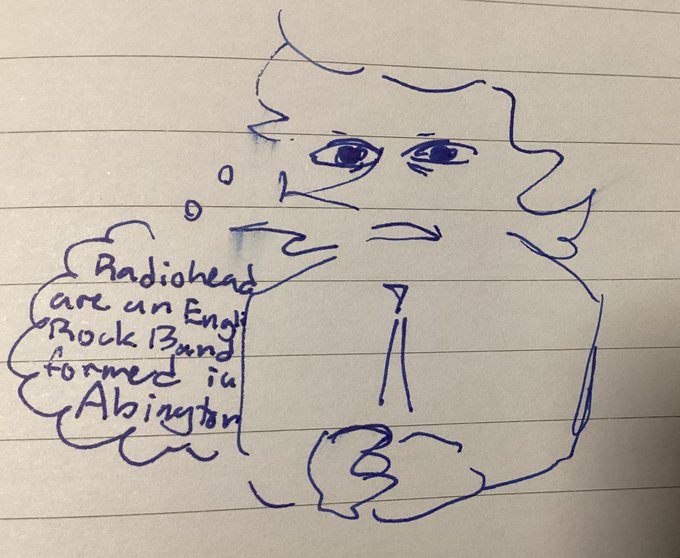 Radiohead
are an Engli
Rock Band
formed in
Abington